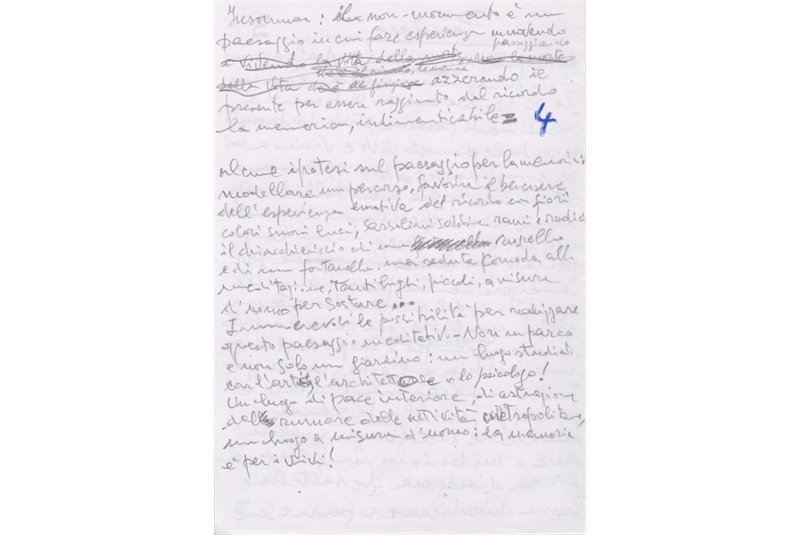 Insomma: il non-monumento è un
paesaggio in cui fare esperienza muovendo
passeggiando
e vivendo la vita della morte, ma la morte
della vita azzerando il
presente per essere raggiunto dal ricordo
la memoria, indimenticabile 4
alcune ipotesi sul paesaggio per la memoria
modellare un percorso, favorire il benessere
dell'esperienza emotiva del ricordo con fiori
colori suoni luci, sassolini sabbie rami e radici
il chiacchierichio di un ruscello
e di una fontanella, una seduta comoda alla
meditazione, tanti luoghi, piccoli, a misura
d'uomo per sostare ...
Innumerevoli le possibilità per realizzare
questo paesaggio meditativo - Non un parco
e non solo un giardino: un luogo studiato
con l'artista, l'architetto e lo psicologo!
Un luogo di pace interiore, di astrazione
dal rumore delle attività metropolitane,
un luogo a misura d'uomo: la memoria
è per i vivi!